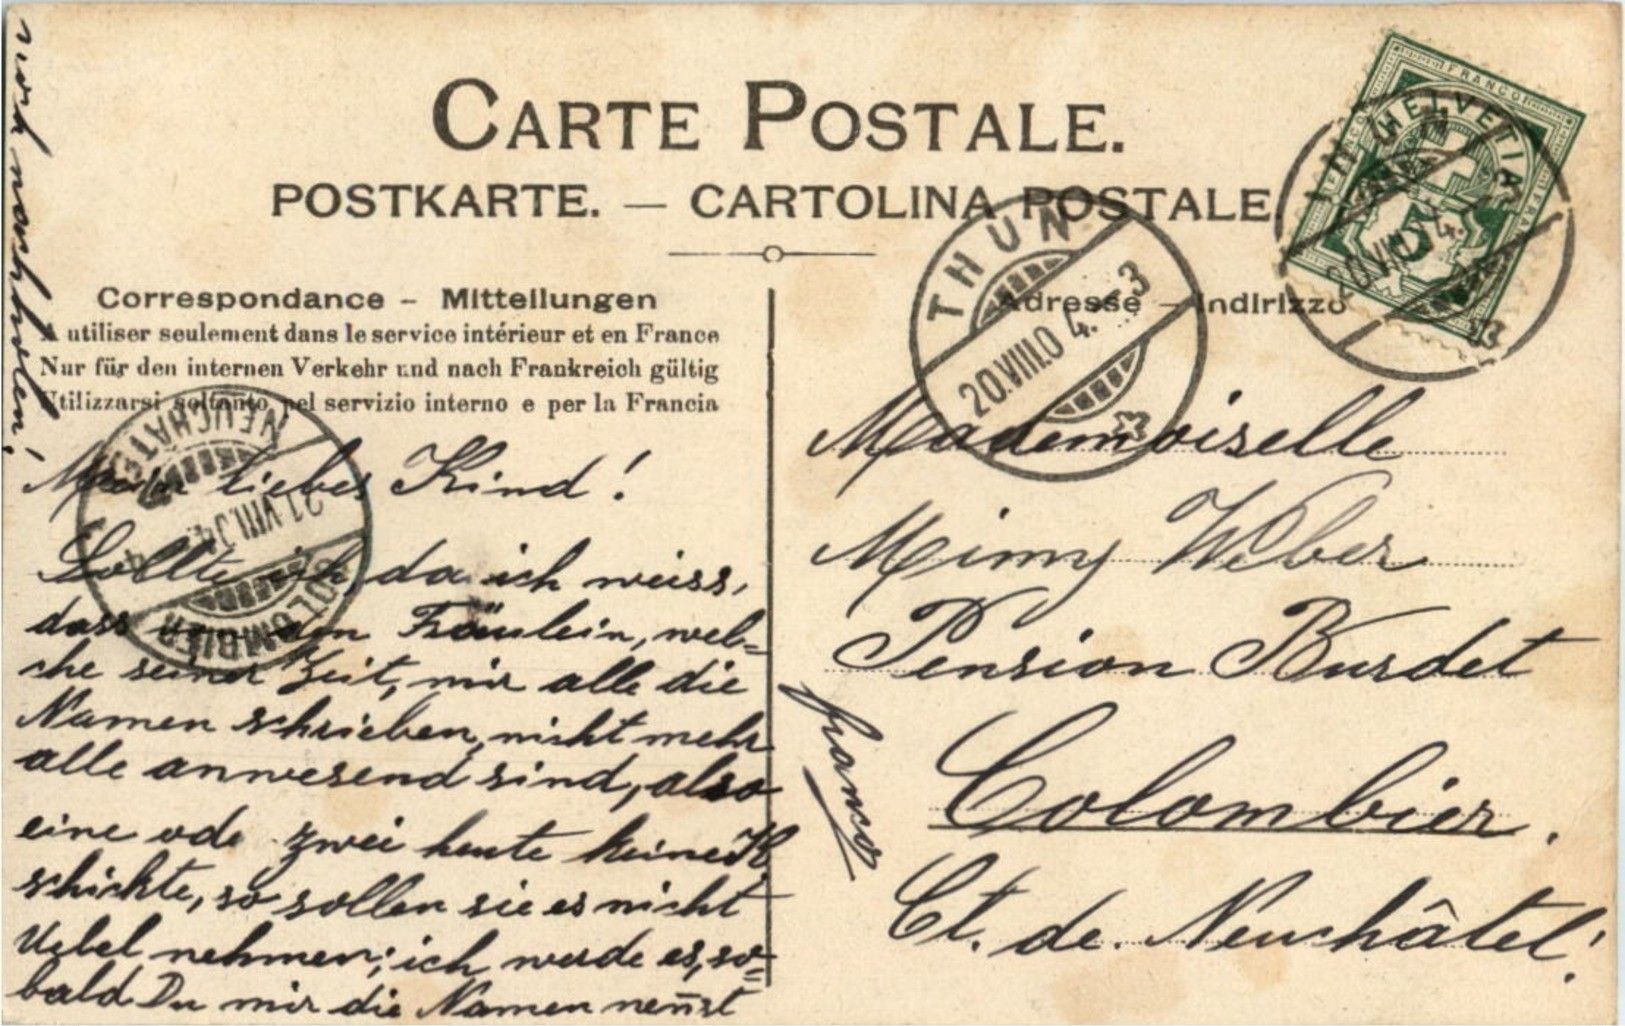 CARTE POSTALE.
POSTKARTE. — CARTOLINA POSTALE.
Correspondance - Mitteilungen
A utiliser seulement dans le service intérieur et en France
Nur für den internen Verkehr und nach Frankreich gültig
Utilizzarsi soltanto nel servizio interno e per la Francia
Mein liebes Kind!
Sollte ich, da ich weiss,
dass von den Fräulein, wel=
che seiner Zeit, mir alle die
Namen schrieben, nicht mehr
alle anwesend sind, also
eine ode zwei heute keine K
schickte, so sollen sie es nicht
Uebel nehmen; ich werde es, so=
bald Du mir die Namen nen̄st
noch nachholen!
Adresse — Indirizzo
Mademoiselle
Mimy Weber
Pension Burdet
Colombier.
Ct. de Neuchâtel!
franco
FRANCO
HELVETIA
5
THUN
20.VIII.04.-3
THUN
20.VIII.04.
COLOMBIER
21.VIII.04
NEUCHATEL